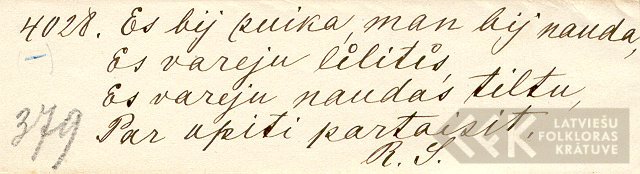 4028. Es bij puika, man bij nauda,
Es vareju lilitis,
Es vareju naudas tiltu,
Par upiti partaisit.
379
R. S.
LATVIEŠU
FOLKLORAS
KRĀTUVE